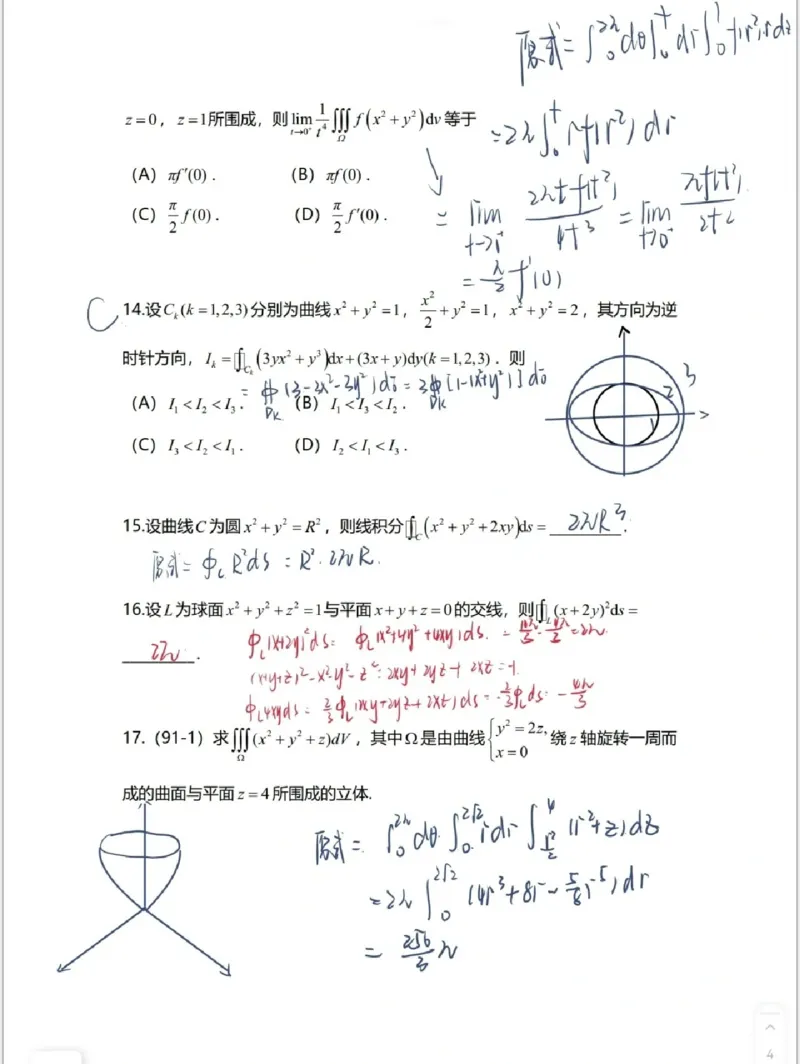 原式=∫₀^{2π}dθ∫₀^t dr∫₀^1 f(r²)rdz
z=0，z=1所围成，则 lim_{t→0⁺} 1/t⁴ ∭_Ω f(x²+y²)dv 等于
=2π∫₀^t rf(r²)dr
（A）πf′(0)．（B）πf(0)．
（C）π/2 f(0)．（D）π/2 f′(0)．
= lim 2πtf(t²)/4t³ = lim_{t→0⁺} πf(t²)/2t²
=π/2 f′(0)
C 14.设C_k(k=1,2,3)分别为曲线x²+y²=1，x²/2+y²=1，x²+y²=2，其方向为逆
时针方向，I_k=∮_{C_k}(3yx²+y³)dx+(3x+y)dy(k=1,2,3)．则
=∯_{Dk}(3-3x²-3y²)dσ=3∯_{Dk}[1-(x²+y²)]dσ
（A）I₁<I₂<I₃．（B）I₁<I₃<I₂．
（C）I₃<I₂<I₁．（D）I₂<I₁<I₃．
1 2 3
15.设曲线C为圆x²+y²=R²，则线积分∮_C(x²+y²+2xy)ds= 2πR³ ．
原式=∮_L R²ds=R²·2πR.
16.设L为球面x²+y²+z²=1与平面x+y+z=0的交线，则∮_L(x+2y)²ds=
2π ．
∮_L(x+2y)²ds=∮_L(x²+4y²+4xy)ds.=10π/3-4π/3=2π
(x+y+z)²-x²-y²-z²=2xy+2yz+2xz=-1.
∮_L4xyds=2/3∮_L(2xy+2yz+2xz)ds=-2/3∮_Lds=-4π/3
17.（91-1）求∭_Ω(x²+y²+z)dV，其中Ω是由曲线{y²=2z, x=0 绕z轴旋转一周而
成的曲面与平面z=4所围成的立体.
原式=∫₀^{2π}dθ∫₀^{2√2}rdr∫_{r²/2}^4(r²+z)dz
=2π∫₀^{2√2}(4r³+8r-5/8r⁵)dr
=256/3π
4